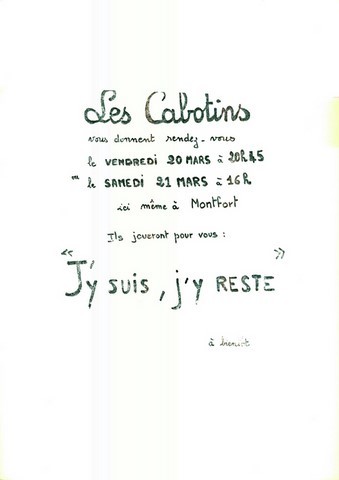 Les Cabotins
vous donnent rendez-vous
le VENDREDI 20 MARS à 20h45
ou le SAMEDI 21 MARS à 16h
ici même à Montfort
Ils joueront pour vous :
"J'y suis, j'y RESTE"
à bientôt